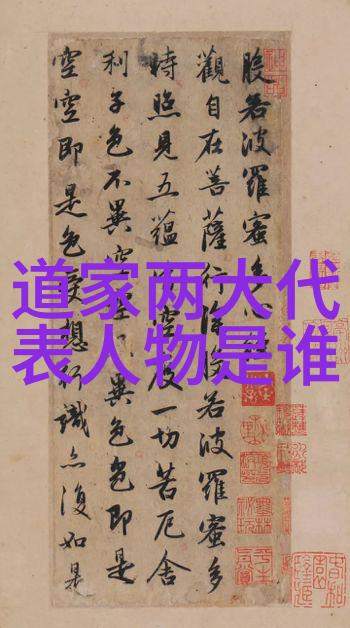 道家两大代
表人物是谁
般若波羅蜜多心經
觀自在菩薩行深般若波羅蜜多
時照見五蘊皆空度一切苦厄舍
利子色不異空空不異色色即是
空空即是色受想行識亦復如是